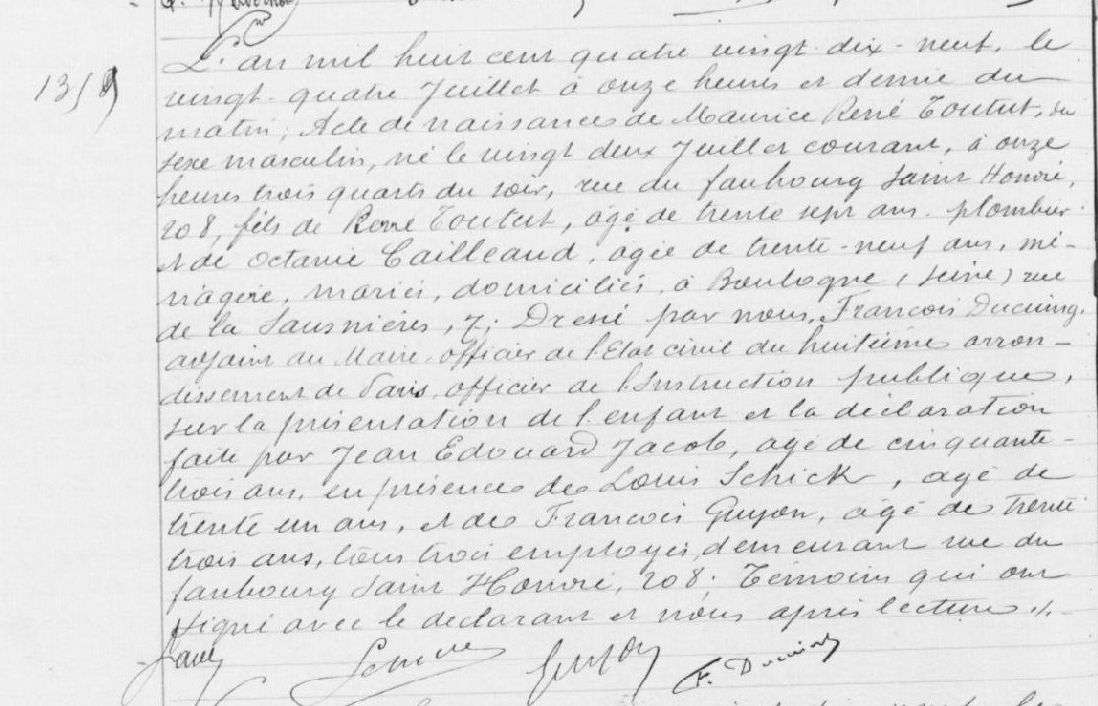 L'an mil huit cent quatre vingt dix-neuf, le
vingt-quatre Juillet à onze heures et demie du
matin; Acte de naissance de Maurice René Toutut, du
sexe masculin, né le vingt deux Juillet courant, à onze
heures trois quarts du soir, rue du faubourg Saint Honoré,
208, fils de René Toutut, âgé de trente sept ans, plombier
et de Octavie Cailleaud, agée de trente-neuf ans, mé-
nagère, mariés, domiciliés à Boulogne (Seine) rue
de la Saussière, 7; Dressé par nous, François Ducuing,
adjoint au Maire, officier de l'Etat civil du huitième arron-
dissement de Paris, officier de l'Instruction publique,
sur la présentation de l'enfant et la déclaration
faite par Jean Edouard Jacob, agé de cinquante-
trois ans, en présence de Louis Schick, agé de
trente un ans, et de François Guyon, âgé de trente
trois ans, tous trois employés, demeurant rue du
faubourg Saint Honoré, 208; Témoins qui ont
signé avec le déclarant et nous après lecture ./.
Guyon F. Ducuing